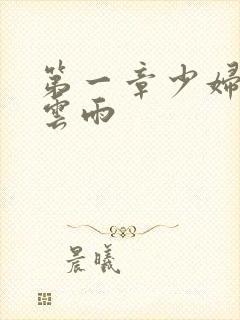 第一章少婦
雲雨
晨曦